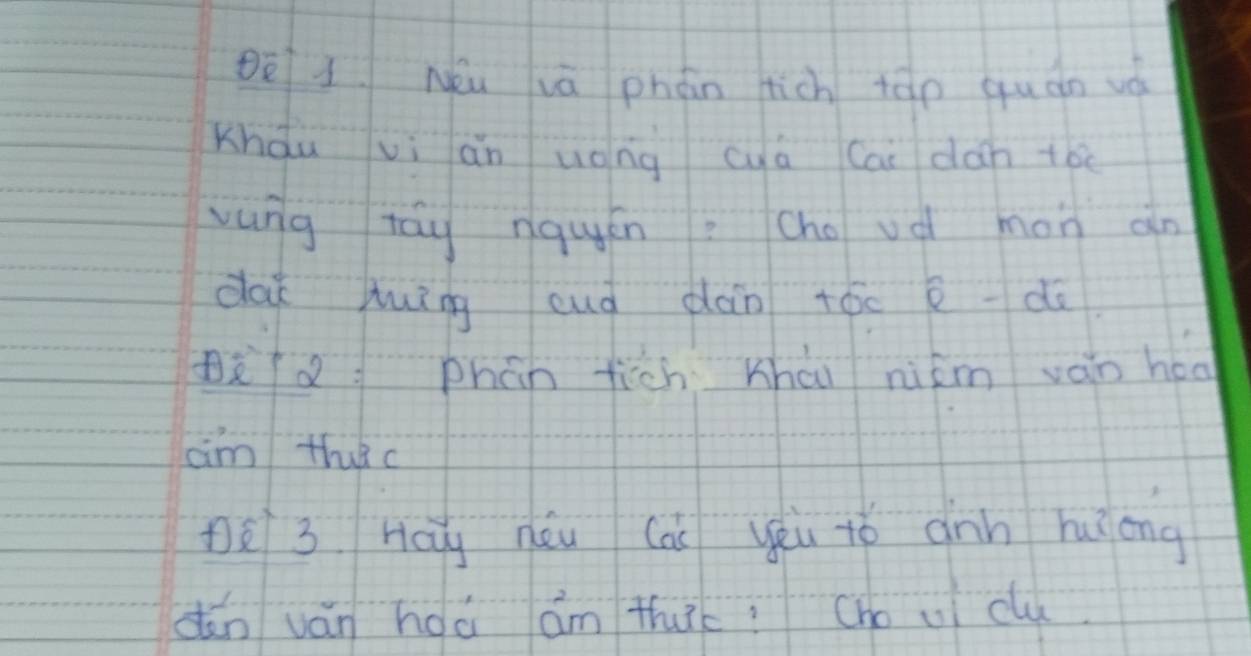 Đề 1. Nêu và phân tích tập quán và
khẩu vị ăn uống của các dân tộc
vùng tây nguyên? Cho vd món ăn
đặc trưng của dân tộc Ê - đê.
Đề 2: phân tích khái niệm văn hóa
ẩm thực
Đề 3. Hãy nêu các yếu tố ảnh hưởng
đến văn hoá ẩm thực? Cho ví dụ.